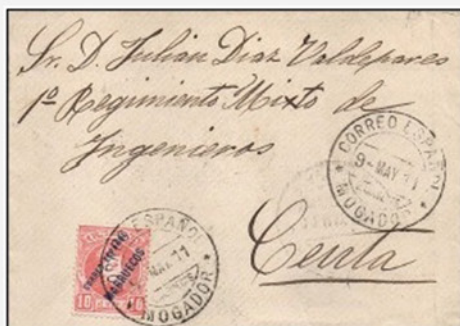 Sr. D. Julián Diaz Valdepares
1º Regimiento Mixto de
Ingenieros
CORREO ESPAÑOL
9-MAY 11
MOGADOR
Ceuta
CORREO ESPAÑOL
MAY 11
MOGADOR
MARRUECOS
10 10